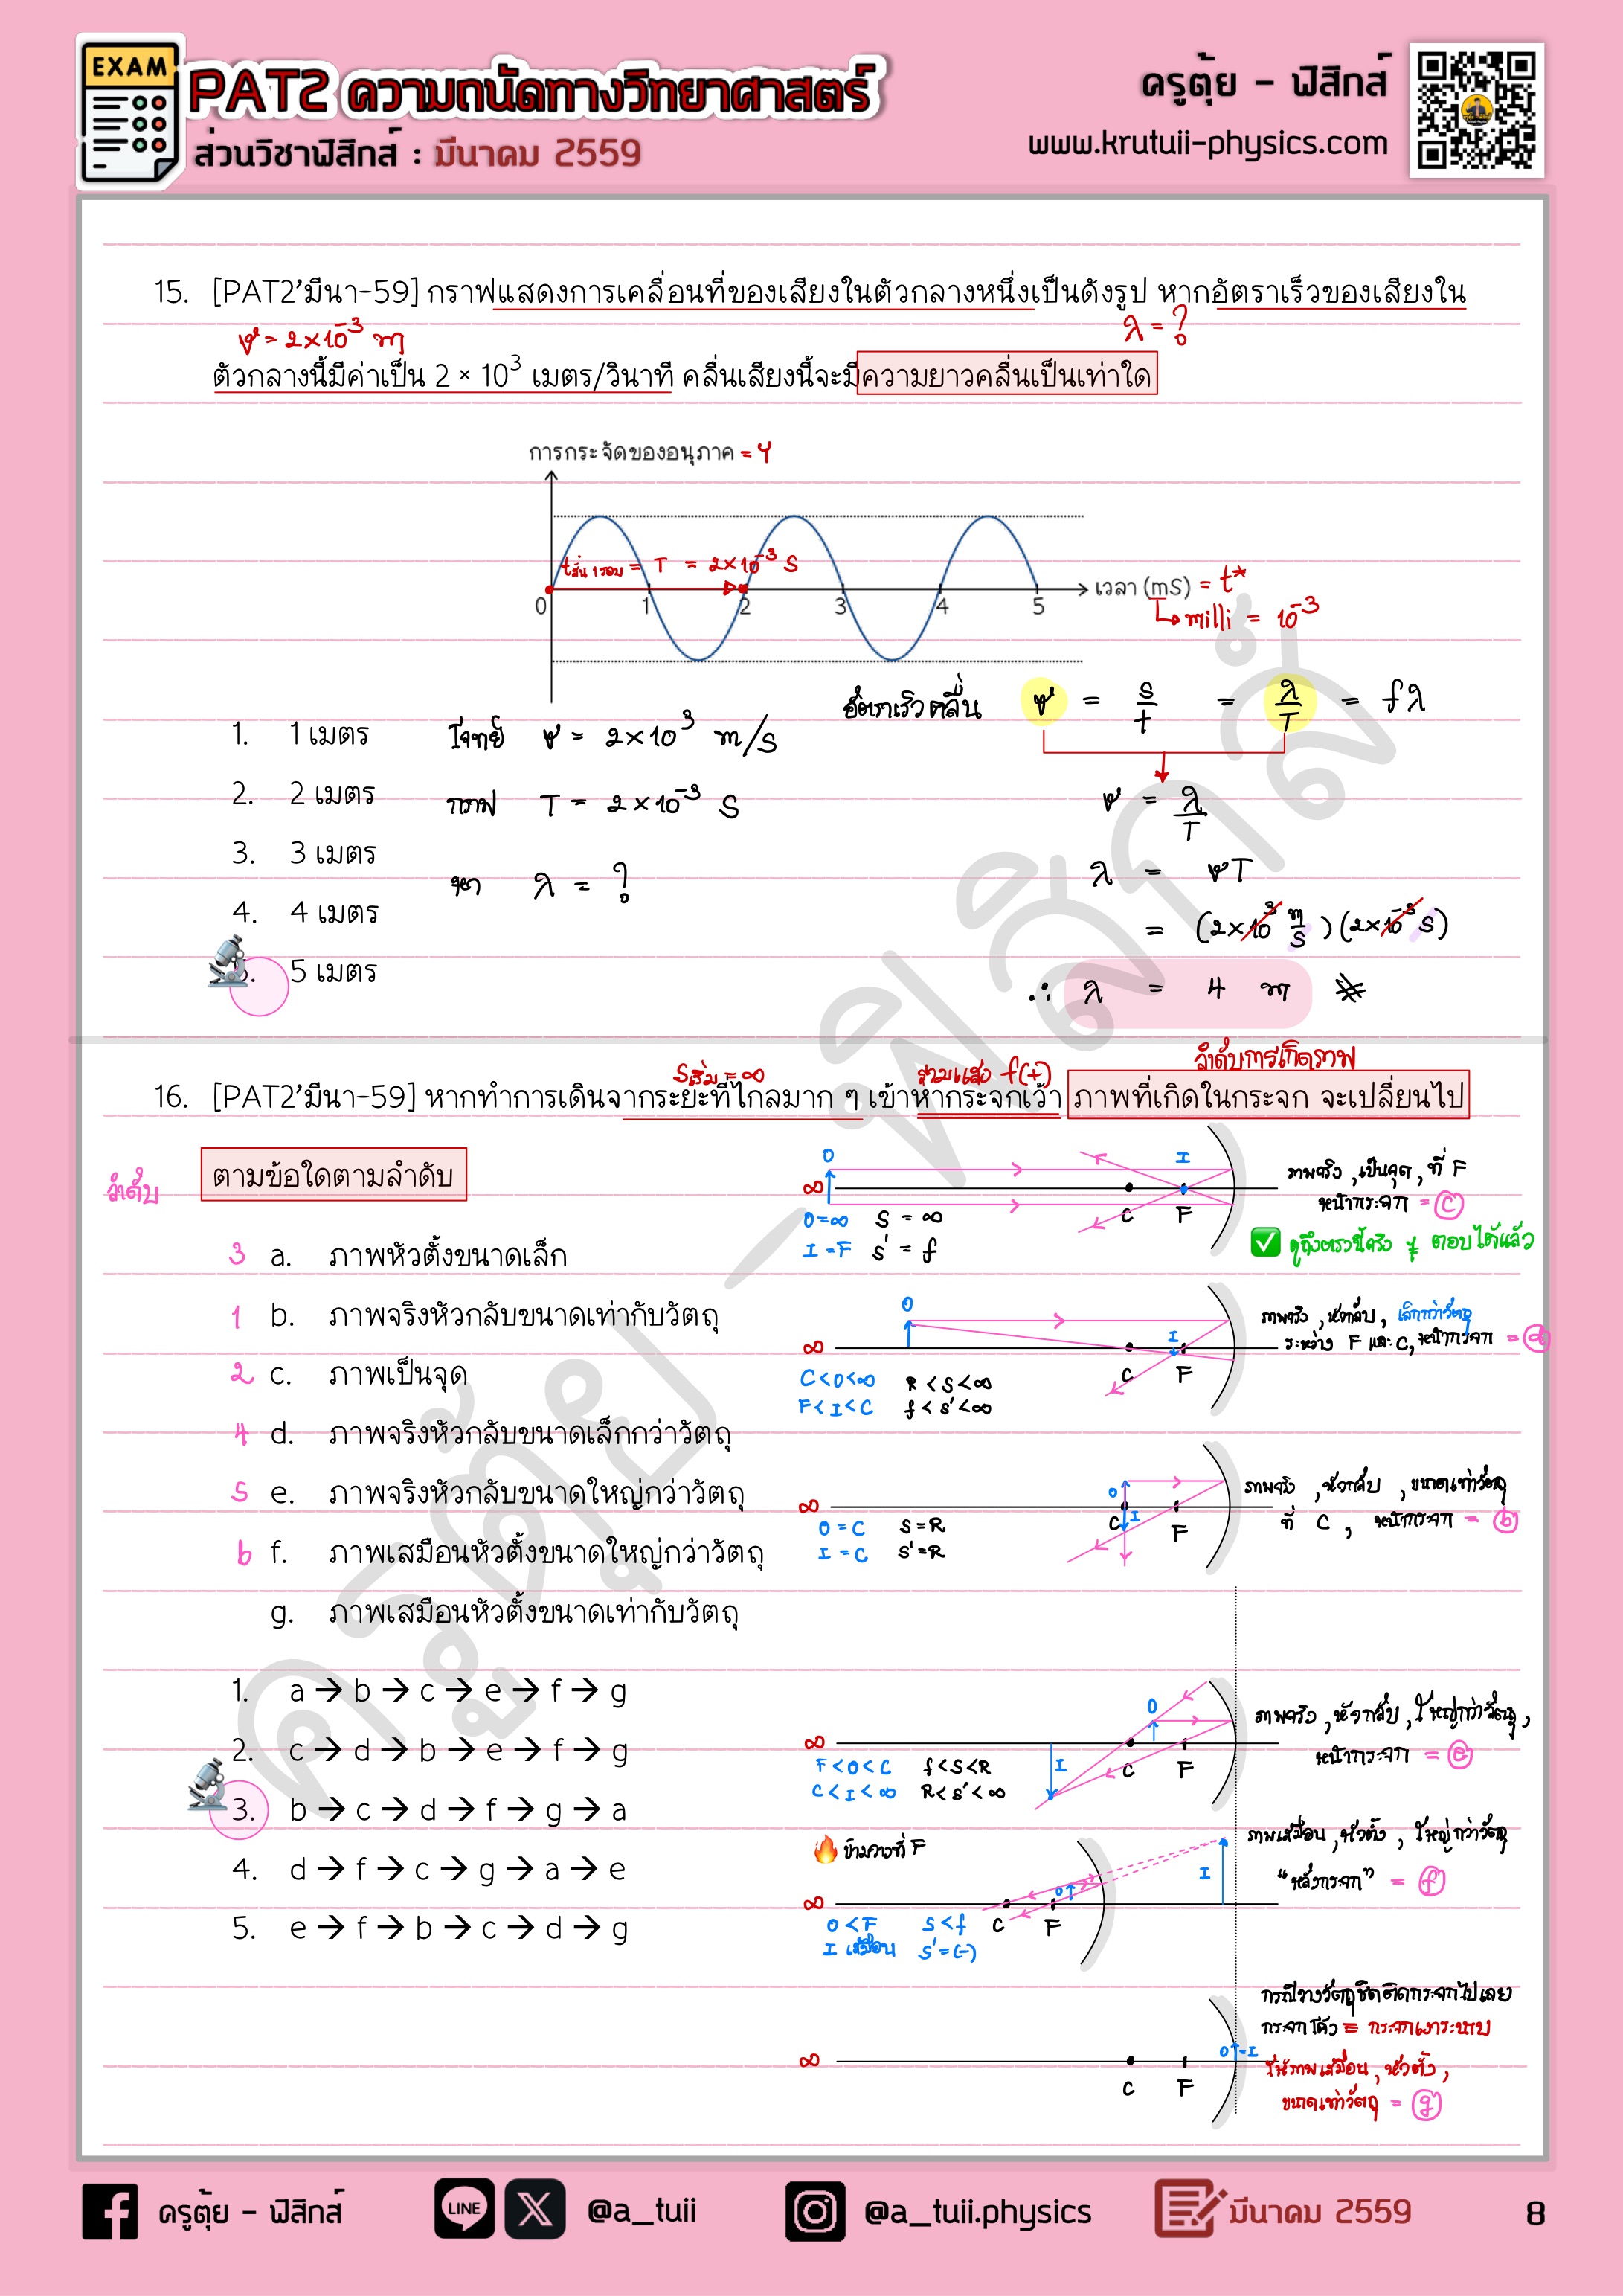 EXAM
PAT2 ความถนัดทางวิทยาศาสตร์
ส่วนวิชาฟิสิกส์ : มีนาคม 2559
ครูตุ้ย - ฟิสิกส์
www.krutuii-physics.com
15. [PAT2'มีนา-59] กราฟแสดงการเคลื่อนที่ของเสียงในตัวกลางหนึ่งเป็นดังรูป หากอัตราเร็วของเสียงใน
v = 2×10⁻³ m
λ = ?
ตัวกลางนี้มีค่าเป็น 2 × 10³ เมตร/วินาที คลื่นเสียงนี้จะมีความยาวคลื่นเป็นเท่าใด
การกระจัดของอนุภาค = Y
tสั่น 1 รอบ = T = 2×10⁻³ S
0 1 2 3 4 5
เวลา (mS) = t*
↳ milli = 10⁻³
อัตราเร็วคลื่น v = s/t = λ/T = fλ
1. 1 เมตร
โจทย์ v = 2×10³ m/s
2. 2 เมตร
กราฟ T = 2×10⁻³ S
v = λ/T
3. 3 เมตร
หา λ = ?
λ = vT
4. 4 เมตร
= (2×10³ m/s)(2×10⁻³ S)
5. 5 เมตร
∴ λ = 4 m
ลำดับการเกิดภาพ
Sเริ่ม = ∞
รวมแสง f(+)
16. [PAT2'มีนา-59] หากทำการเดินจากระยะที่ไกลมาก ๆ เข้าหากระจกเว้า ภาพที่เกิดในกระจก จะเปลี่ยนไป
ตามข้อใดตามลำดับ
ลำดับ
3 a. ภาพหัวตั้งขนาดเล็ก
1 b. ภาพจริงหัวกลับขนาดเท่ากับวัตถุ
2 c. ภาพเป็นจุด
4 d. ภาพจริงหัวกลับขนาดเล็กกว่าวัตถุ
5 e. ภาพจริงหัวกลับขนาดใหญ่กว่าวัตถุ
6 f. ภาพเสมือนหัวตั้งขนาดใหญ่กว่าวัตถุ
g. ภาพเสมือนหัวตั้งขนาดเท่ากับวัตถุ
1. a → b → c → e → f → g
2. c → d → b → e → f → g
3. b → c → d → f → g → a
4. d → f → c → g → a → e
5. e → f → b → c → d → g
O I
∞ C F
O=∞ S = ∞
I =F S' = f
ภาพจริง , เป็นจุด , ที่ F
หน้ากระจก = c
ดูถึงตรงนี้จริง ๆ ตอบได้แล้ว
O I
∞ C F
C<O<∞ R<S<∞
F<I<C f<S'<∞
ภาพจริง , หัวกลับ , เล็กกว่าวัตถุ
ระหว่าง F และ C, หน้ากระจก = d
O I
∞ C F
O = C S=R
I = C S'=R
ภาพจริง , หัวกลับ , ขนาดเท่าวัตถุ
ที่ C , หน้ากระจก = b
O I
∞ C F
F<O<C f<S<R
C<I<∞ R<S'<∞
ภาพจริง , หัวกลับ , ใหญ่กว่าวัตถุ ,
หน้ากระจก = e
ข้ามวางที่ F
O I
∞ C F
O<F S<f
I เสมือน S'=(-)
ภาพเสมือน , หัวตั้ง , ใหญ่กว่าวัตถุ
"หลังกระจก" = f
กรณีวางวัตถุชิดติดกระจกไปเลย
กระจกโค้ง = กระจกเงาระนาบ
O=I
∞ C F
ให้ภาพเสมือน , หัวตั้ง ,
ขนาดเท่าวัตถุ = g
ครูตุ้ย - ฟิสิกส์
ครูตุ้ย - ฟิสิกส์
LINE
X
@a_tuii
@a_tuii.physics
มีนาคม 2559
8